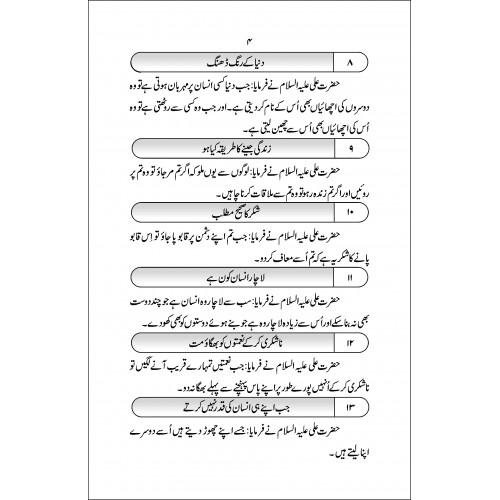 ۴
۸ دنیا کے رنگ ڈھنگ
حضرت علی علیہ السلام نے فرمایا: جب دنیا کسی انسان پر مہربان ہوتی ہے تو وہ
دوسروں کی اچھائیاں بھی اُس کے نام کر دیتی ہے۔ اور جب وہ کسی سے روٹھتی ہے تو وہ
اُس کی اچھائیاں بھی اُس سے چھین لیتی ہے۔
۹ زندگی جینے کا طریقہ کیا ہو
حضرت علی علیہ السلام نے فرمایا: لوگوں سے یوں ملو کہ اگر تم مر جاؤ تو وہ تم پر
روئیں اور اگر تم زندہ رہو تو وہ تم سے ملاقات کرنا چاہیں۔
۱۰ شکر کا صحیح مطلب
حضرت علی علیہ السلام نے فرمایا: جب تم اپنے دشمن پر قابو پا جاؤ تو اِس قابو
پانے کا شکر یہ ہے کہ تم اُسے معاف کر دو۔
۱۱ لاچار انسان کون ہے
حضرت علی علیہ السلام نے فرمایا: سب سے لاچار وہ انسان ہے جو چند دوست
بھی نہ بنا سکے اور اُس سے زیادہ لاچار وہ ہے جو بنے ہوئے دوستوں کو بھی کھو دے۔
۱۲ ناشکری کر کے نعمتوں کو بھگاؤ مت
حضرت علی علیہ السلام نے فرمایا: جب نعمتیں تمہارے قریب آنے لگیں تو
ناشکری کر کے اُنہیں پورے طور پر اپنے پاس پہنچنے سے پہلے بھگا نہ دو۔
۱۳ جب اپنے ہی انسان کی قدر نہیں کرتے
حضرت علی علیہ السلام نے فرمایا: جسے اپنے چھوڑ دیتے ہیں اُسے دوسرے
اپنا لیتے ہیں۔